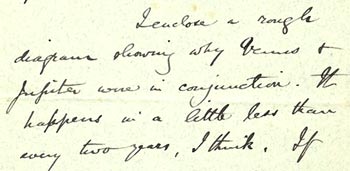 I enclose a rough
diagram showing why Venus &
Jupiter were in conjunction. It
happens in a little less than
every two years, I think. If